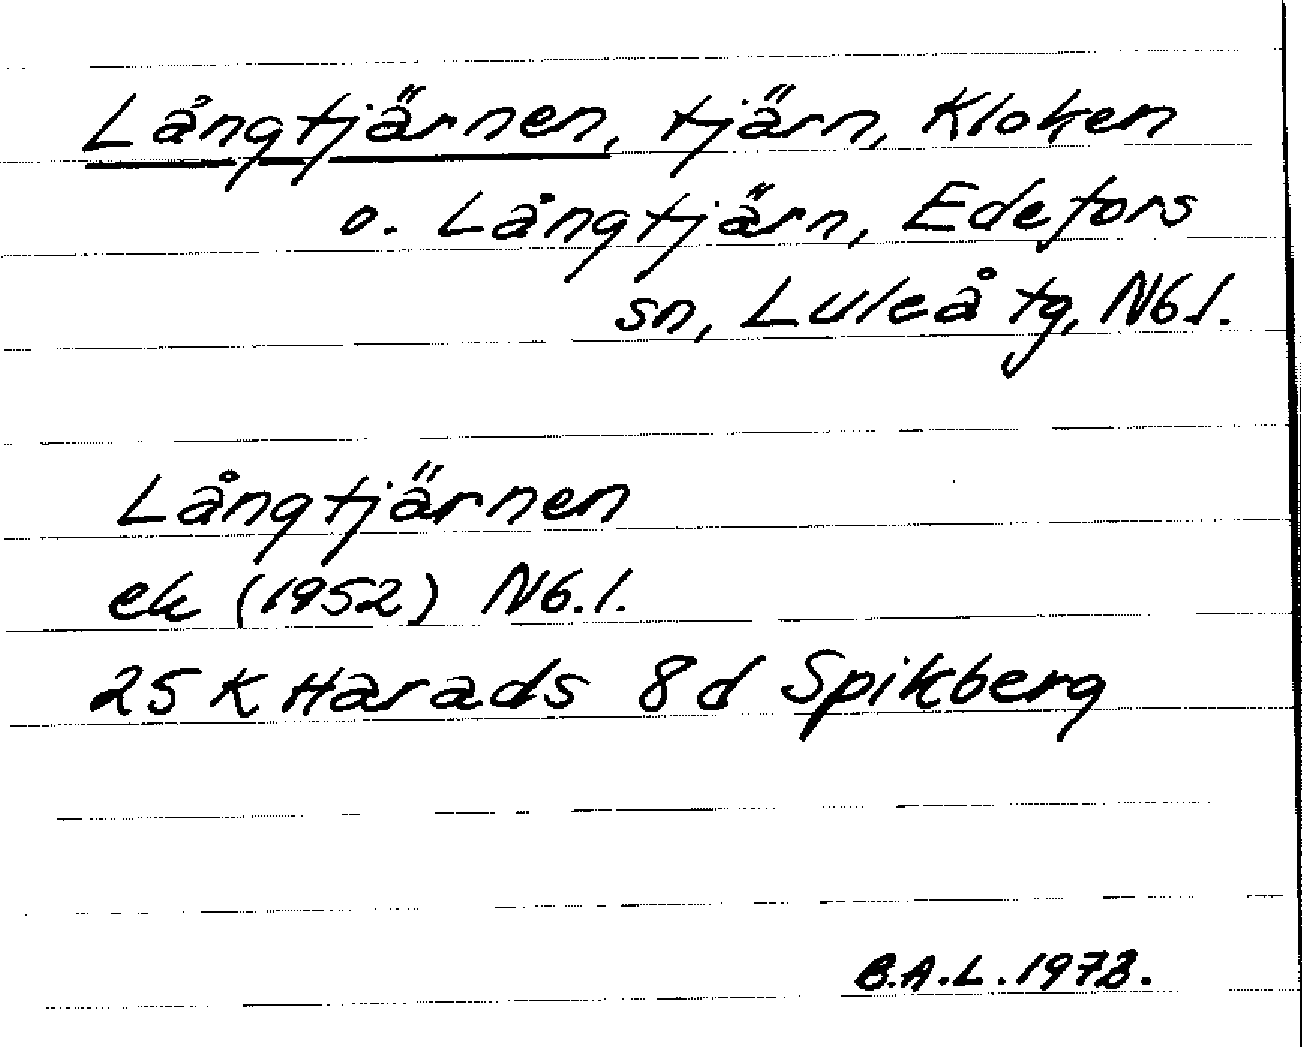 Långtjärnen, tjärn, Kloken
o. Långtjärn, Edefors
sn, Luleå tg, Nb.l.
Långtjärnen
ek (1952) Nb.l.
25 K Harads 8d Spikberg
B.A.L. 1973.